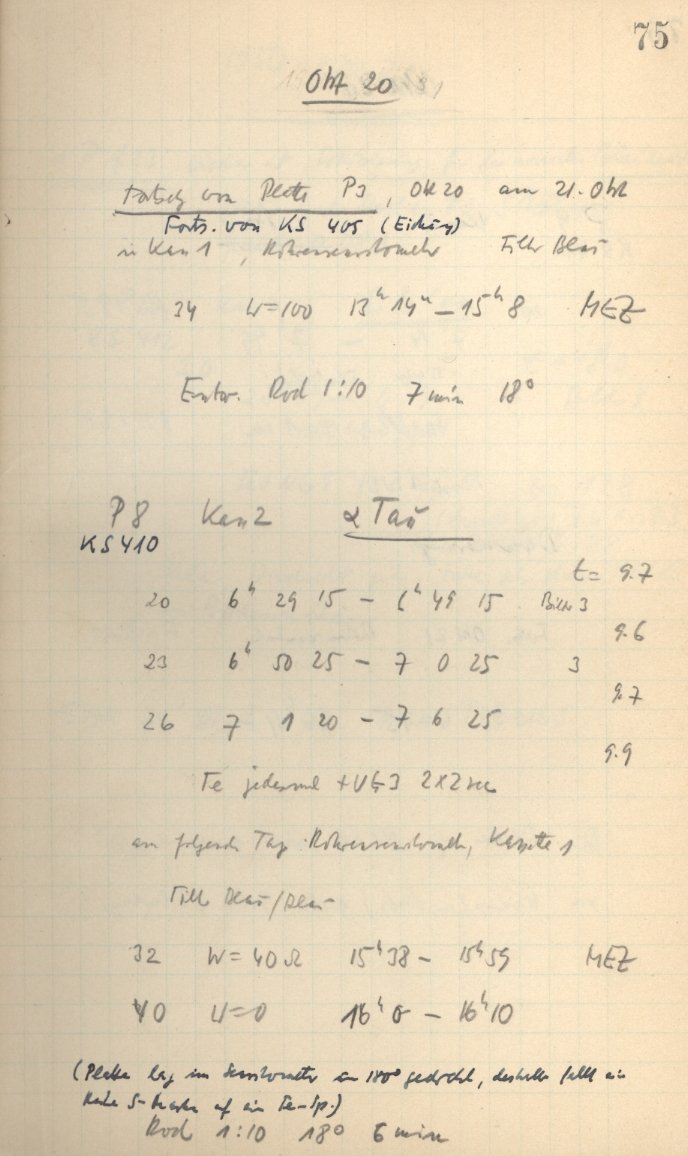 75
Okt 20
Fortsetz von Platte P3, Okt 20 am 21. Okt
Forts. von KS 405 (Eichung)
in Kass 1, Röhrensensitometer Filter Blau
34 W=100 13h 14m – 15h 8 MEZ
Entw. Rod 1:10 7 min 18°
P8 Kass 2 α Tau
KS 410
t= 9.7
20 6h 29 15 – 6h 49 15 Bilder 3
9.6
23 6h 50 25 – 7 0 25 3
9.7
26 7 1 20 – 7 6 25
9.9
Te jedesmal 2x2 sec
am folgenden Tag Röhrensensitometer, Kassette 1
Filter Blau/Blau
32 W = 40 Ω 15h 38 – 15h 59 MEZ
40 W=0 16h 0 – 16h 10
(Platte lag im Sensitometer um 180° gedreht, deshalb fällt ein
S-Marken auf ein Te-Sp.)
Rod 1:10 18° 6 min